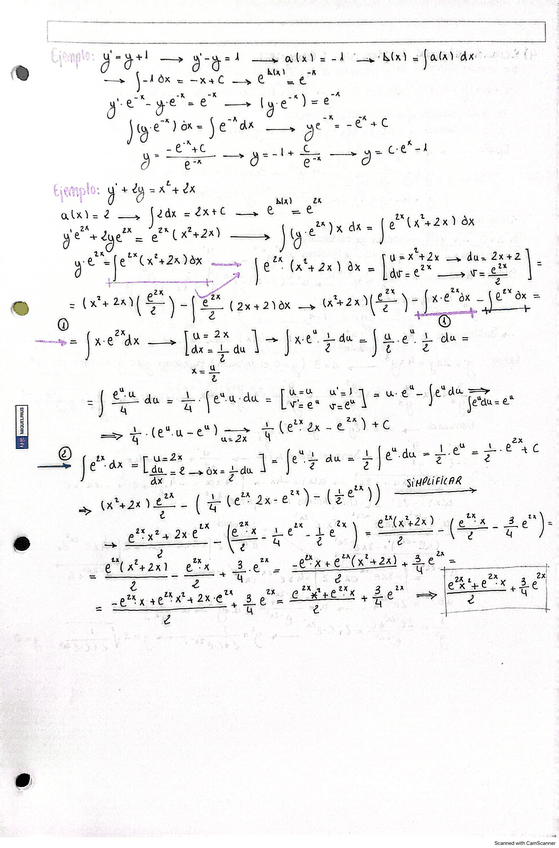 Ejemplo: y' = y+1 → y'-y = 1 → a(x) = -1 → b(x) = ∫a(x) dx
→ ∫-1 dx = -x + C → e^b(x) = e^-x
y'·e^-x - y·e^-x = e^-x → (y·e^-x) = e^-x
∫(y·e^-x) dx = ∫e^-x dx → ye^-x = -e^-x + C
y = (-e^-x + C)/e^-x → y = -1 + C/e^-x → y = C·e^x - 1
Ejemplo: y' + 2y = x² + 2x
a(x) = 2 → ∫2dx = 2x + C → e^b(x) = e^2x
y'e^2x + 2ye^2x = e^2x (x²+2x) → ∫(y·e^2x) x dx = ∫e^2x (x²+2x) dx
y·e^2x = ∫e^2x (x²+2x) dx → ∫e^2x · (x²+2x) dx = [u = x²+2x → du = 2x+2 dv = e^2x → v = e^2x/2] =
= (x²+2x)(e^2x/2) - ∫e^2x/2 (2x+2) dx → (x²+2x)(e^2x/2) - ∫x·e^2x dx - ∫e^2x dx =
① ①
→ = ∫x·e^2x dx → [u = 2x dx = 1/2 du x = u/2] → ∫x·e^u · 1/2 du = ∫u/2 · e^u · 1/2 du =
= ∫e^u·u/4 du = 1/4 · ∫e^u·u·du = [u = u u' = 1 v' = e^u v = e^u] = u·e^u - ∫e^u du ⇒ ∫e^u du = e^u
⇒ 1/4 · (e^u·u - e^u) → u=2x 1/4 (e^2x·2x - e^2x) + C
② → ∫e^2x · dx = [u = 2x du/dx = 2 → dx = 1/2 du] = ∫e^u · 1/2 du = 1/2 ∫e^u·du = 1/2·e^u = 1/2·e^2x + C
⇒ (x²+2x) e^2x/2 - (1/4 (e^2x·2x - e^2x) - (1/2 e^2x)) SIMPLIFICAR →
→ (e^2x·x² + 2x e^2x)/2 - (e^2x·x/2 - 1/4 e^2x - 1/2 e^2x) = e^2x(x²+2x)/2 - (e^2x·x/2 - 3/4 e^2x) =
= e^2x(x²+2x)/2 - e^2x·x/2 + 3/4·e^2x = (-e^2x·x + e^2x(x²+2x))/2 + 3/4 e^2x =
= (-e^2x·x + e^2x·x² + 2x·e^2x)/2 + 3/4 e^2x = (e^2x x² + e^2x·x)/2 + 3/4 e^2x ⇒ (e^2x x² + e^2x·x)/2 + 3/4 e^2x
MIQUELRIUS
Scanned with CamScanner